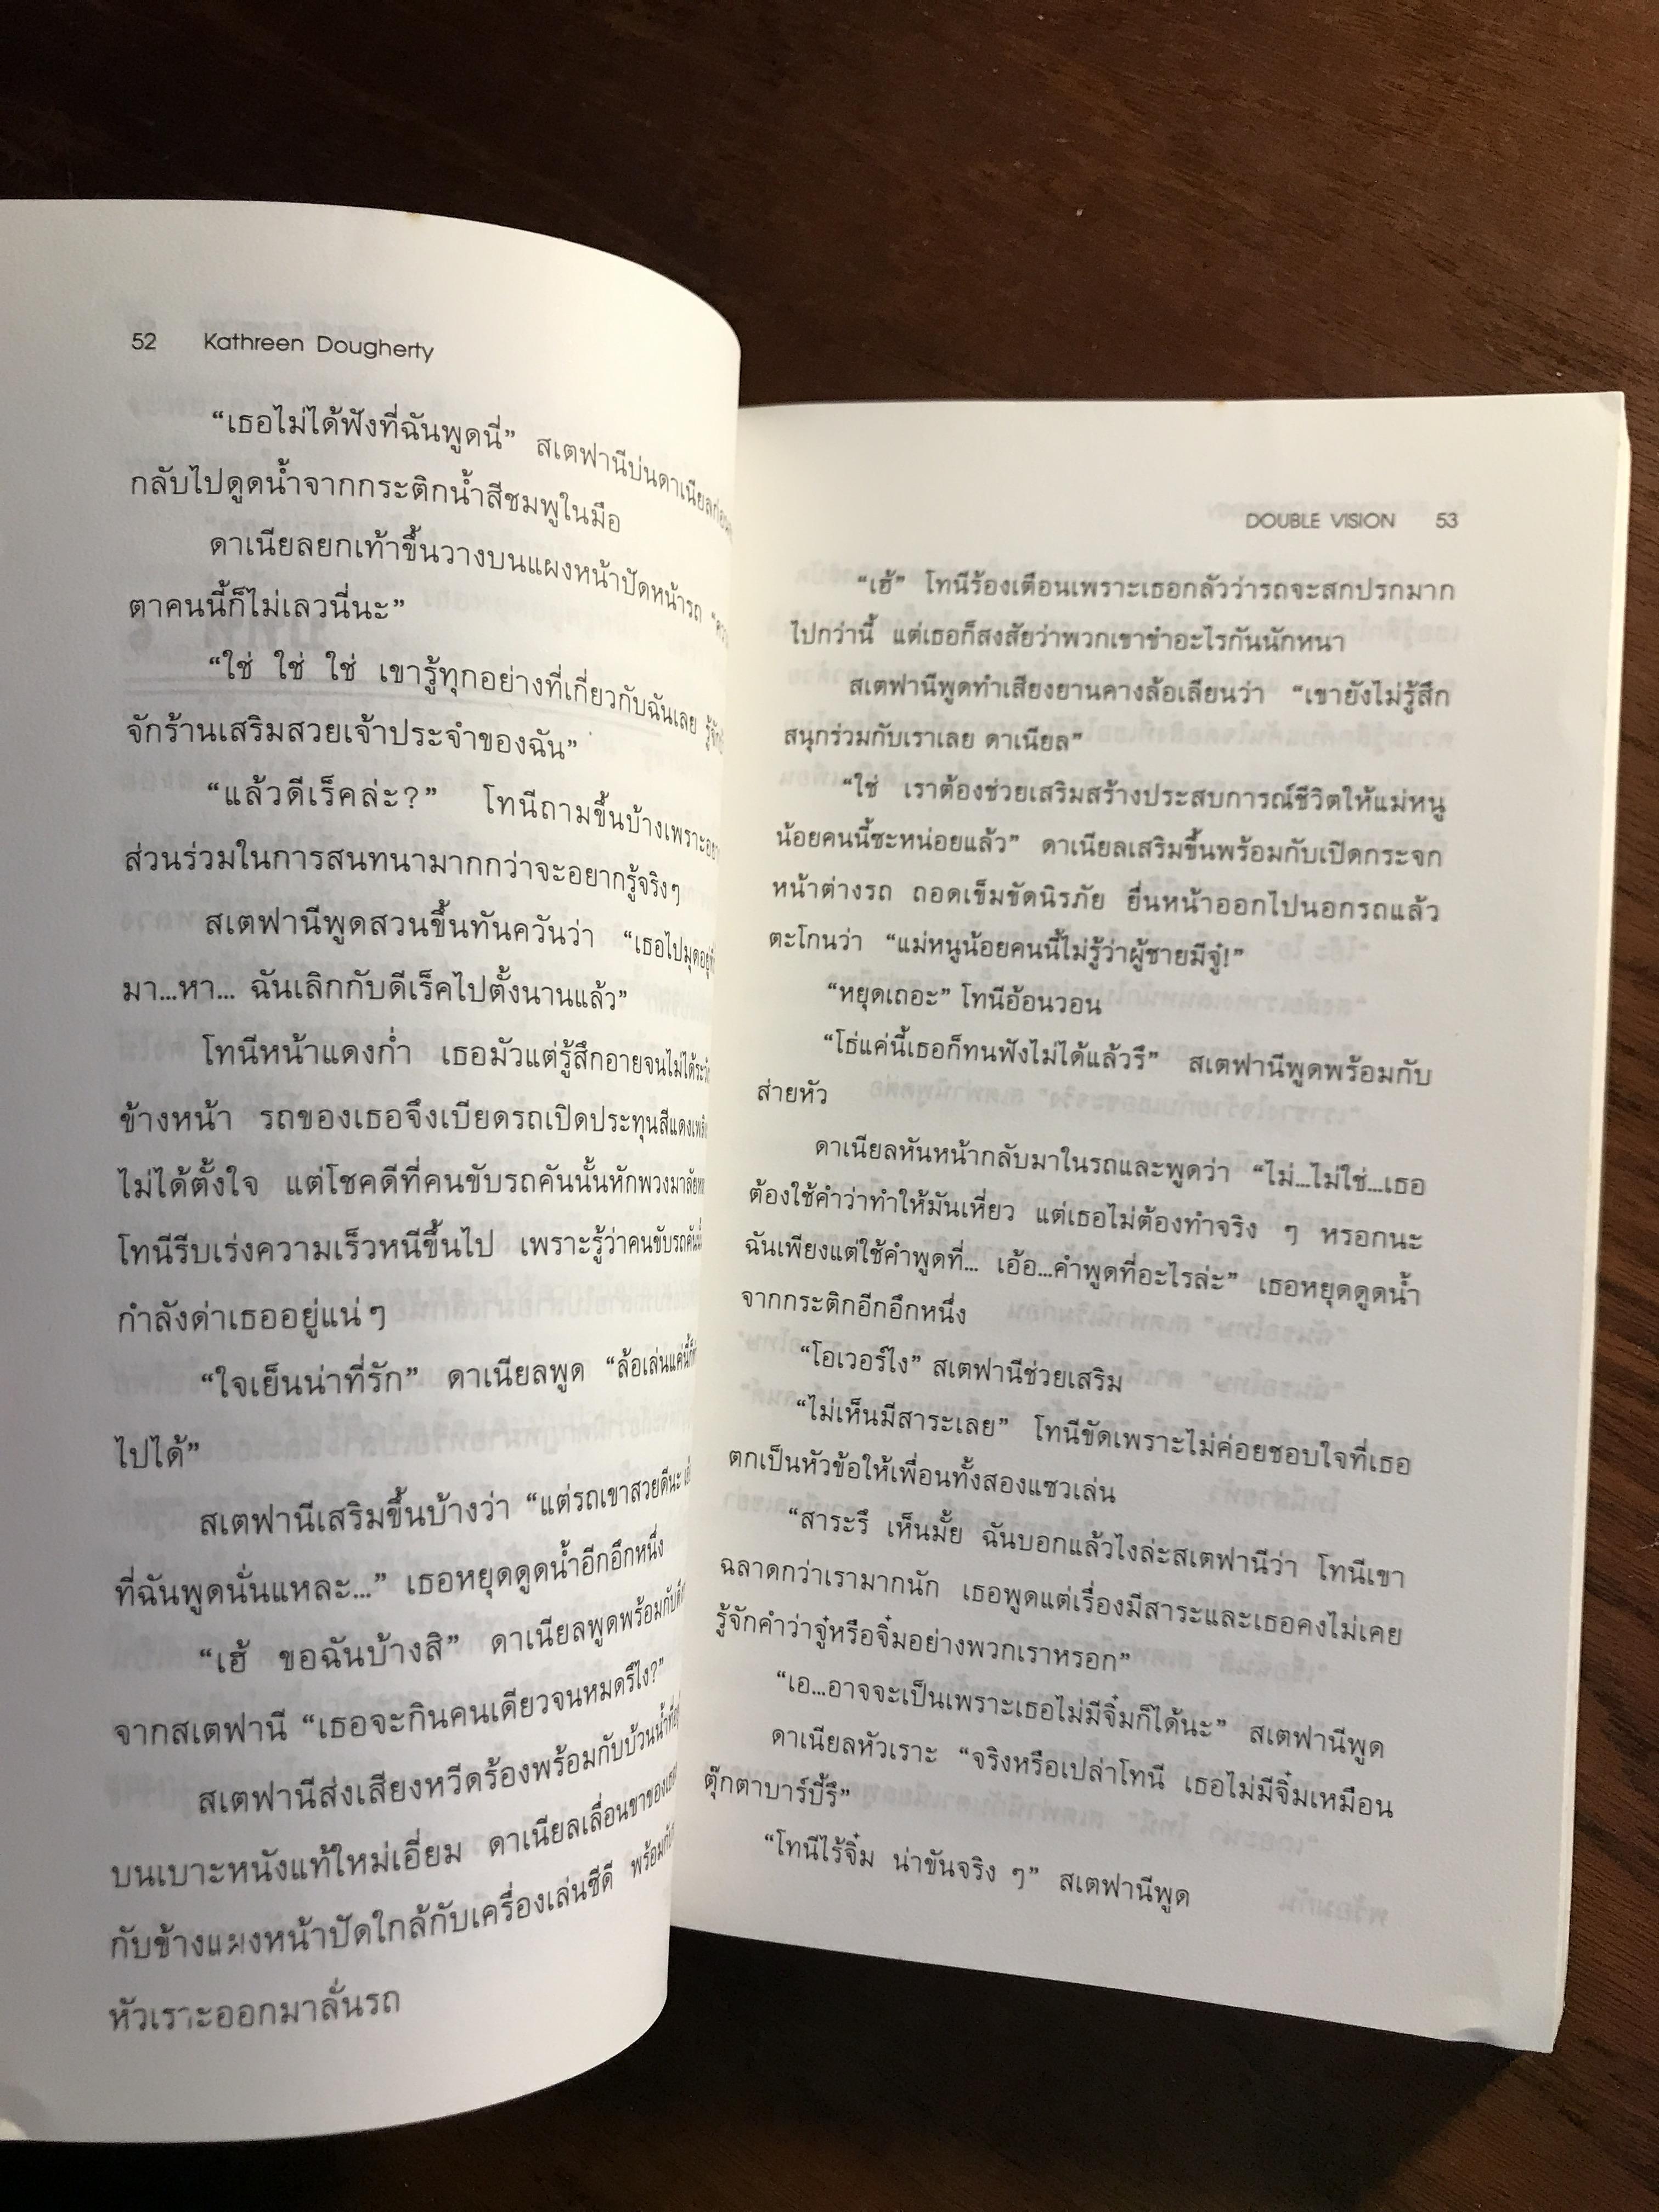 52 Kathreen Dougherty
“เธอไม่ได้ฟังที่ฉันพูดนี่” สเตฟานีบ่นดาเนียล
กลับไปดูดน้ำจากกระติกน้ำสีชมพูในมือ
ดาเนียลยกเท้าขึ้นวางบนแผงหน้าปัดหน้ารถ
ตาคนนี้ก็ไม่เลวนี่นะ”
“ใช่ ใช่ ใช่ เขารู้ทุกอย่างที่เกี่ยวกับฉันเลย
จักร้านเสริมสวยเจ้าประจำของฉัน”
“แล้วดีเร็คล่ะ?” โทนีถามขึ้นบ้างเพราะ
ส่วนร่วมในการสนทนามากกว่าจะอยากรู้จริงๆ
สเตฟานีพูดสวนขึ้นทันควันว่า “เธอไปมุด
มา...หา... ฉันเลิกกับดีเร็คไปตั้งนานแล้ว”
โทนีหน้าแดงก่ำ เธอมัวแต่รู้สึกอายจนไม่ได้
ข้างหน้า รถของเธอจึงเบียดรถเปิดประทุนสีแดง
ไม่ได้ตั้งใจ แต่โชคดีที่คนขับรถคันนั้นหักพวงมาลัย
โทนีรีบเร่งความเร็วหนีขึ้นไป เพราะรู้ว่าคนขับรถ
กำลังด่าเธออยู่แน่ๆ
“ใจเย็นน่าที่รัก” ดาเนียลพูด “ล้อเล่นแค่นี้
ไปได้”
สเตฟานีเสริมขึ้นบ้างว่า “แต่รถเขาสวยดีนะ
ที่ฉันพูดนั่นแหละ...” เธอหยุดดูดน้ำอีกอึกหนึ่ง
“เฮ้ ขอฉันบ้างสิ” ดาเนียลพูดพร้อมกับ
จากสเตฟานี “เธอจะกินคนเดียวจนหมดรึไง?”
สเตฟานีส่งเสียงหวีดร้องพร้อมกับบ้วนน้ำ
บนเบาะหนังแท้ใหม่เอี่ยม ดาเนียลเลื่อนขาของ
กับข้างแผงหน้าปัดใกล้กับเครื่องเล่นซีดี พร้อม
หัวเราะออกมาลั่นรถ
DOUBLE VISION 53
“เฮ้” โทนีร้องเตือนเพราะเธอกลัวว่ารถจะสกปรกมาก
ไปกว่านี้ แต่เธอก็สงสัยว่าพวกเขาขำอะไรกันนักหนา
สเตฟานีพูดทำเสียงยานคางล้อเลียนว่า “เขายังไม่รู้สึก
สนุกร่วมกับเราเลย ดาเนียล”
“ใช่ เราต้องช่วยเสริมสร้างประสบการณ์ชีวิตให้แม่หนู
น้อยคนนี้ซะหน่อยแล้ว” ดาเนียลเสริมขึ้นพร้อมกับเปิดกระจก
หน้าต่างรถ ถอดเข็มขัดนิรภัย ยื่นหน้าออกไปนอกรถแล้ว
ตะโกนว่า “แม่หนูน้อยคนนี้ไม่รู้ว่าผู้ชายมีจู๋!”
“หยุดเถอะ” โทนีอ้อนวอน
“โธ่แค่นี้เธอก็ทนฟังไม่ได้แล้วรึ” สเตฟานีพูดพร้อมกับ
ส่ายหัว
ดาเนียลหันหน้ากลับมาในรถและพูดว่า “ไม่...ไม่ใช่...เธอ
ต้องใช้คำว่าทำให้มันเหี่ยว แต่เธอไม่ต้องทำจริง ๆ หรอกนะ
ฉันเพียงแต่ใช้คำพูดที่... เอ้อ...คำพูดที่อะไรล่ะ” เธอหยุดดูดน้ำ
จากกระติกอีกอึกหนึ่ง
“โอเวอร์ไง” สเตฟานีช่วยเสริม
“ไม่เห็นมีสาระเลย” โทนีขัดเพราะไม่ค่อยชอบใจที่เธอ
ตกเป็นหัวข้อให้เพื่อนทั้งสองแซวเล่น
“สาระรึ เห็นมั้ย ฉันบอกแล้วไงล่ะสเตฟานีว่า โทนีเขา
ฉลาดกว่าเรามากนัก เธอพูดแต่เรื่องมีสาระและเธอคงไม่เคย
รู้จักคำว่าจู๋หรือจิ๋มอย่างพวกเราหรอก”
“เอ...อาจจะเป็นเพราะเธอไม่มีจิ๋มก็ได้นะ” สเตฟานีพูด
ดาเนียลหัวเราะ “จริงหรือเปล่าโทนี เธอไม่มีจิ๋มเหมือน
ตุ๊กตาบาร์บี้รึ”
“โทนีไร้จิ๋ม น่าขันจริง ๆ” สเตฟานีพูด